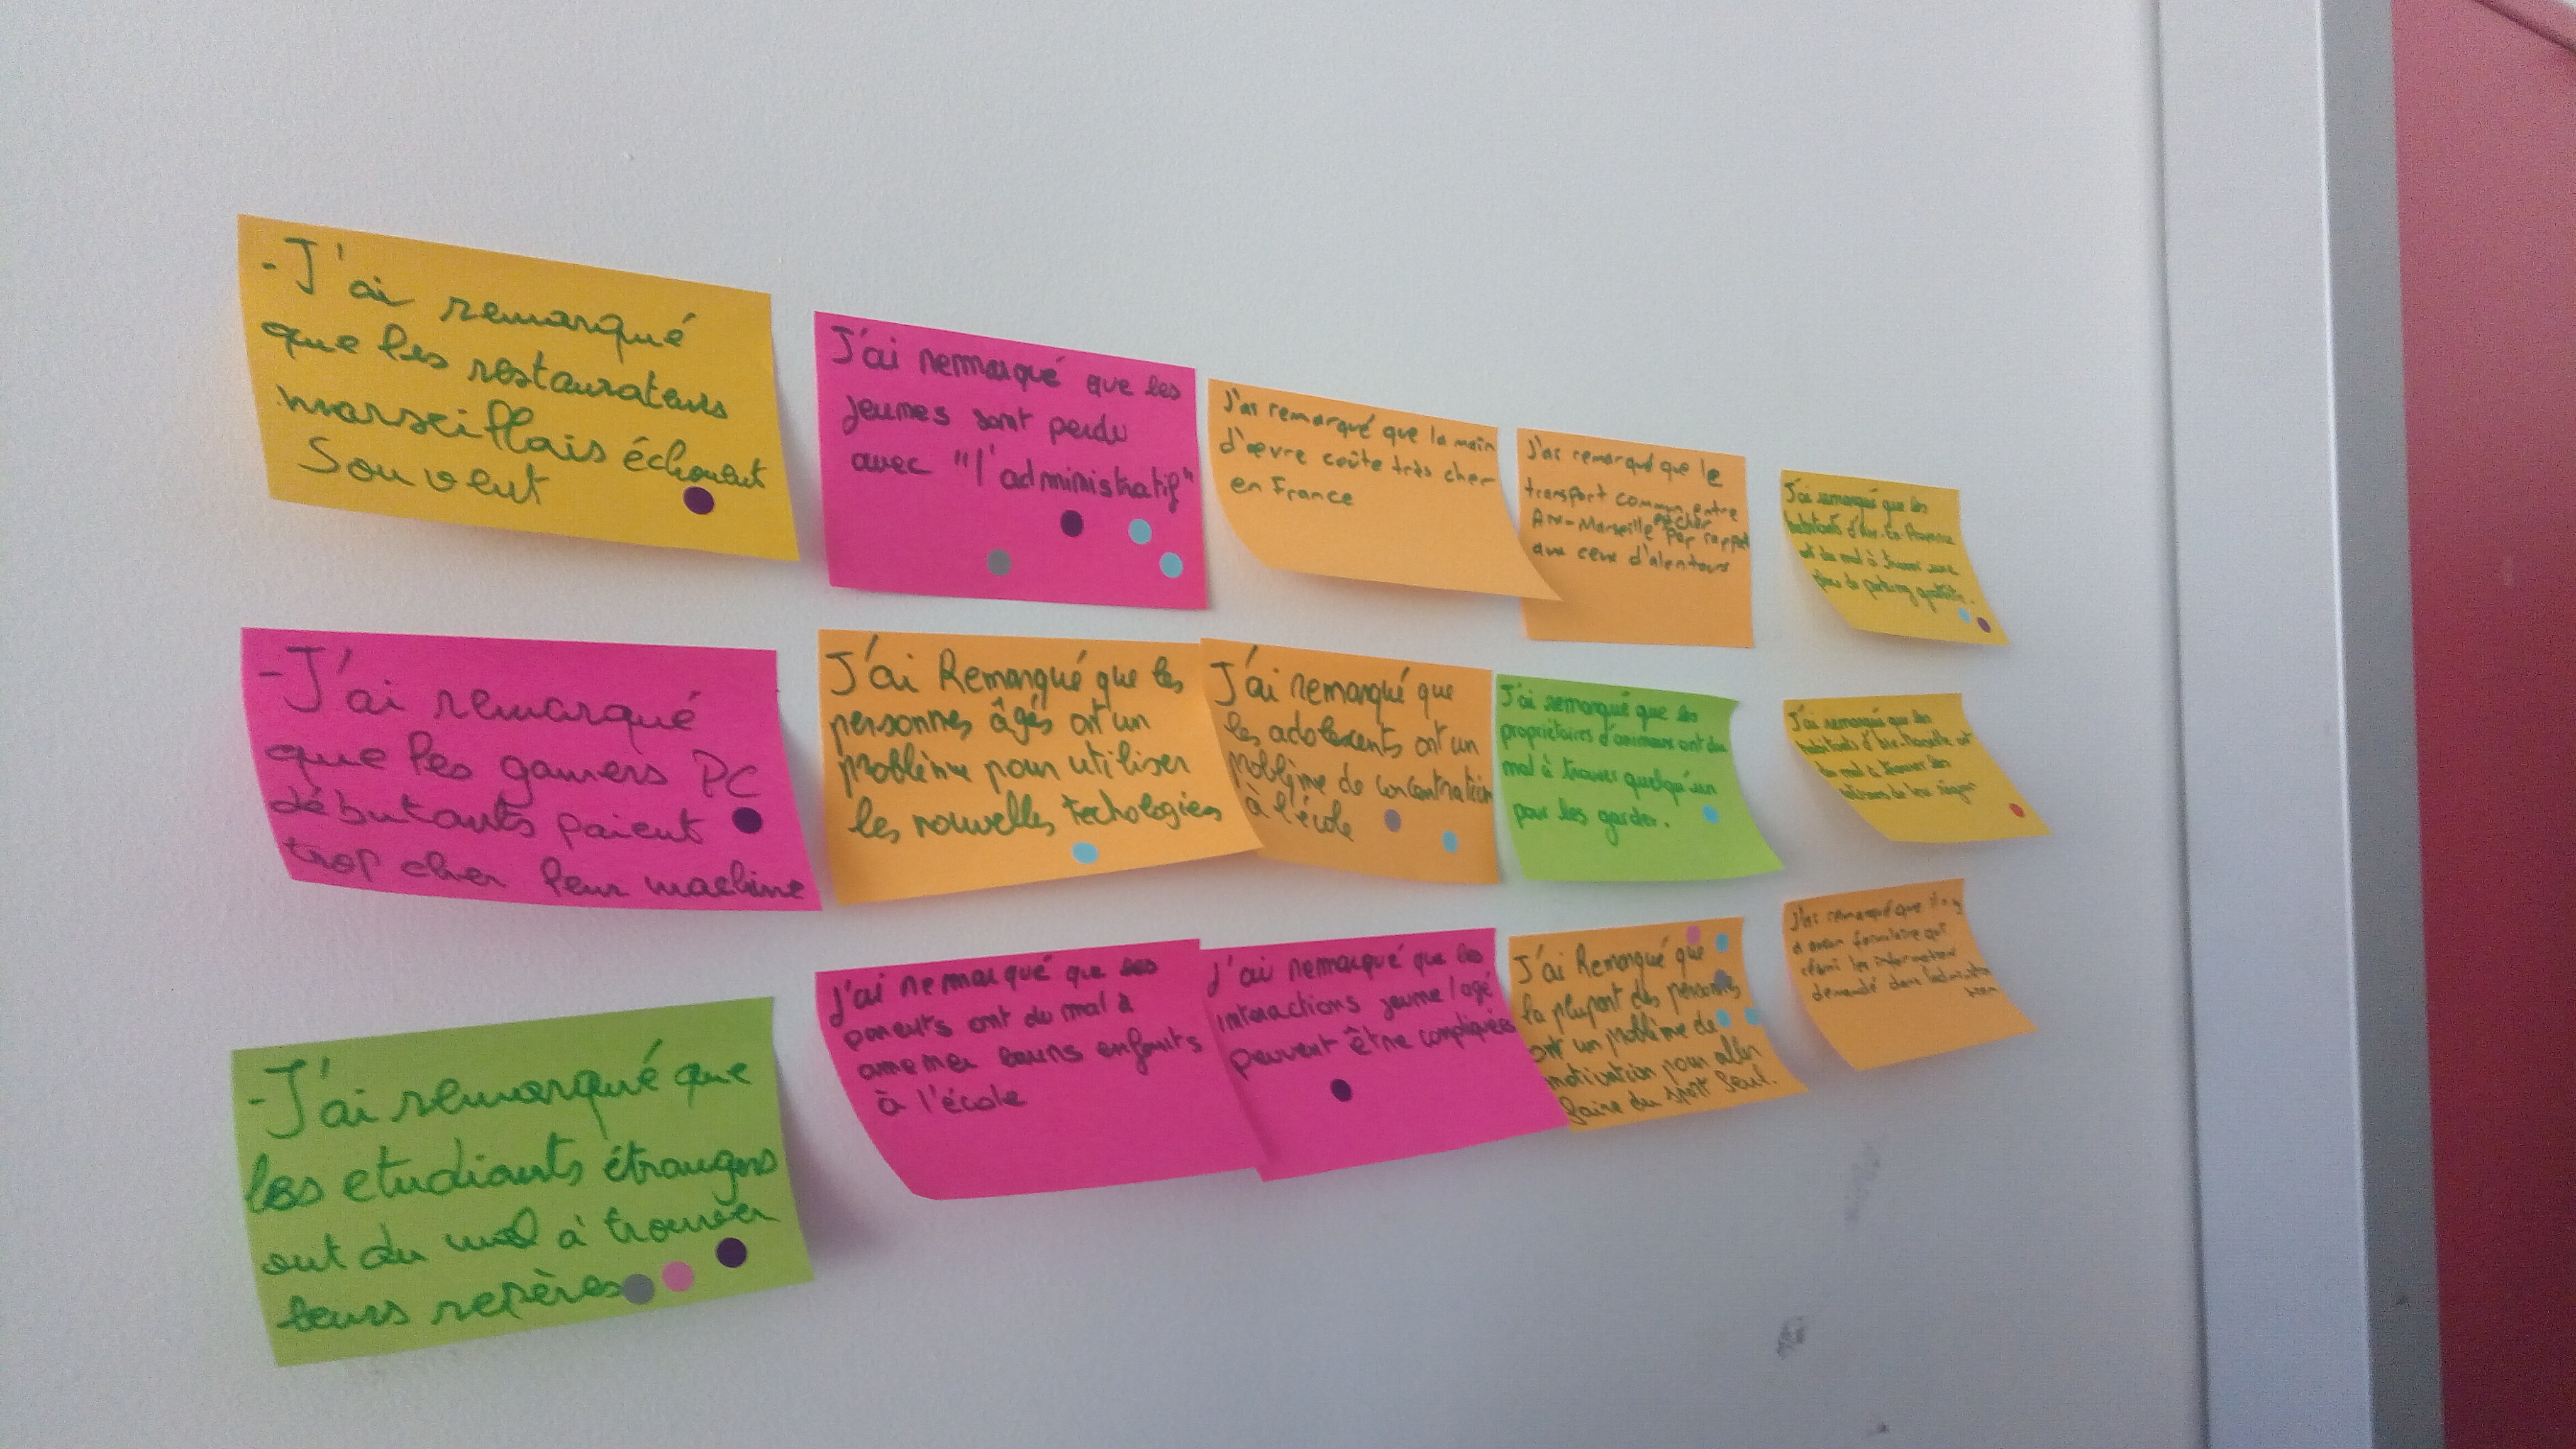 - J'ai remarqué
que les restaurateurs
marseillais échouent
souvent
J'ai remarqué que les
jeunes sont perdu
avec "l'administratif"
J'ai remarqué que la main
d'œvre coûte très cher
en France
J'ai remarqué que le
transport commun entre
Aix-Marseille est cher par rapport
aux ceux d'alentours
J'ai remarqué que les
habitants d'Aix-En-Provence
ont du mal à trouver une
place de parking gratuite.
- J'ai remarqué
que les gamers PC
débutants paient
trop cher leur machine
J'ai Remarqué que les
personnes âgés ont un
problème pour utiliser
les nouvelles techologies
J'ai remarqué que
les adolescents ont un
problème de concentration
à l'école
J'ai remarqué que les
propriétaires d'animaux ont du
mal à trouver quelqu'un
pour les garder.
J'ai remarqué que les
habitants d'Aix-Marseille ont
du mal à trouver les
de leur région
- J'ai remarqué que
les etudiants étrangers
ont du mal à trouver
leurs repères
J'ai remarqué que les
parents ont du mal à
amener leurs enfants
à l'école
J'ai remarqué que les
interactions jeune/agé
peuvent être compliquées
J'ai Remarqué que
la plupart des personnes
ont un problème de
motivation pour aller
faire du sport seul.
J'ai remarqué que il n'y
a aucun formulaire qui
réuni les information
demandé dans